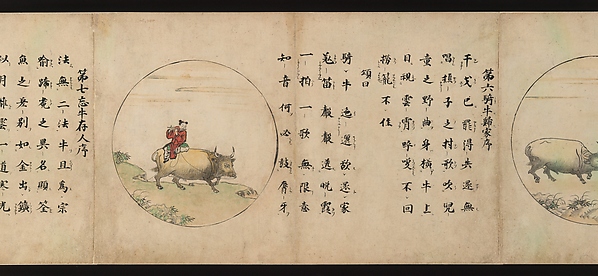 第六騎牛歸家序
干戈已罷得失還無
唱樵子之村歌吹兒
童之野曲身橫牛上
目視雲霄呼喚不回
撈籠不住
頌曰
騎牛迤邐欲還家
羗笛聲聲送晚霞
一拍一歌無限意
知音何必鼓唇牙
第七忘牛存人序
法無二法牛且為宗
喻蹄兔之異名顯筌
魚之差別如金出鑛
似月離雲一道寒光